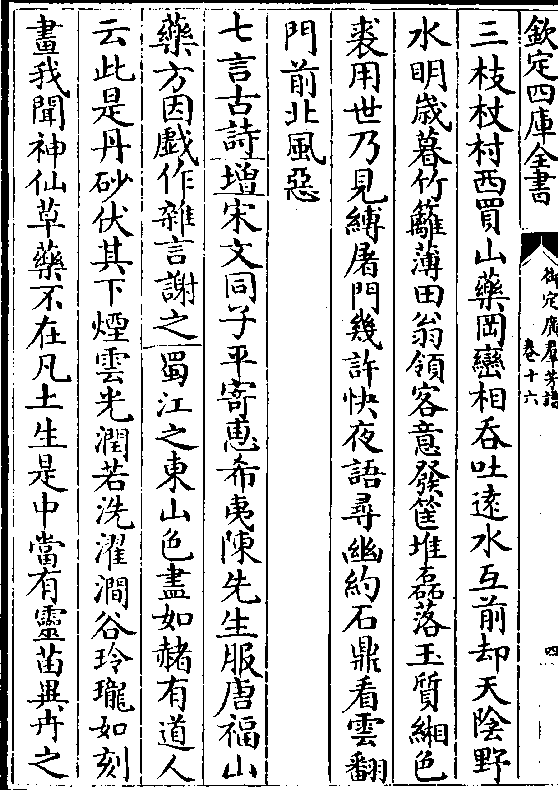 欽定四庫全書
御定廣羣芳譜
卷十六
四
三枝杖村西買山藥岡巒相吞吐遠水互前却天陰野
水明歲暮竹籬薄田翁領客意發筐堆磊落玉質緗色
裘用世乃見縛屠門幾許快夜語尋幽約石鼎看雲翻
門前北風惡
七言古詩增宋文同子平寄惠希夷陳先生服唐福山
藥方因戲作雜言謝之蜀江之東山色盡如赭有道人
云此是丹砂伏其下煙雲光潤若洗濯澗谷玲瓏如刻
畫我聞神仙草藥不在凡土生是中當有靈苗異卉之